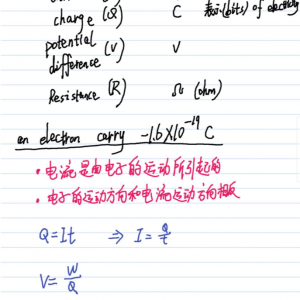 charge (Q) C 表示(bits) of electricity
potential difference (V) V
Resistance (R) Ω (ohm)
an electron carry -1.6×10⁻¹⁹ C
• 电流是由电子的运动所引起的
• 电子的运动方向和电流运动方向相反
Q=It ⇒ I=Q/t
V=W/Q